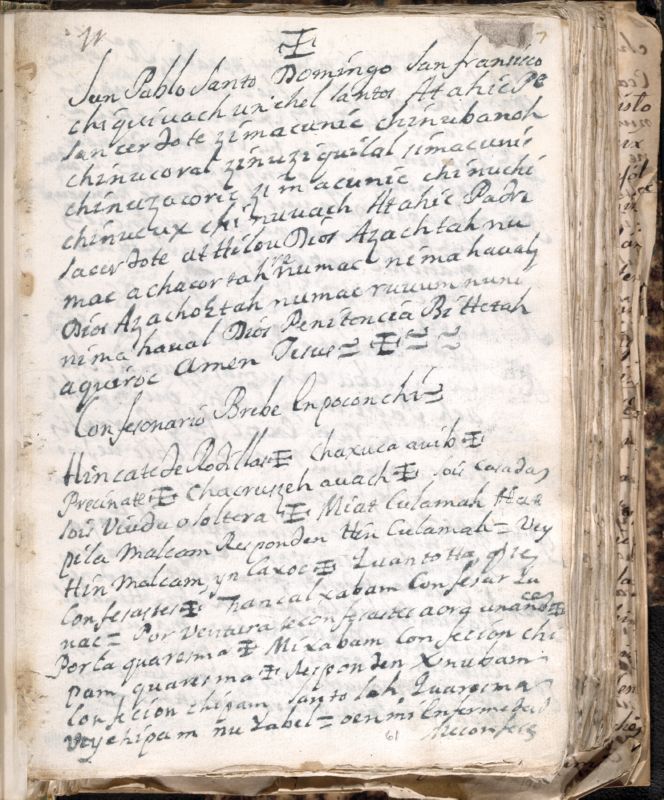 San Pablo Santo Domingo San fransisco
chiquiuach unchel santos Atahic Pe
san cerdote zimacunic chinubanoh
chinucoral zinuziquilal zimacunic
chinuzacoric zimacunic chinuchi
chinucux chi nuuach Atahic Padri
sacerdote at Hilou Dios Azachtah nu
mac achacortah numac nimahaual
Dios Azachohtah numac ruuum nuni
nimahaual Dios Penitencia Bittetah
aquiroc Amen Jesus
Confesonario Brebe Enpoconchi
Hincate de Rodillas Chaxuca auib
Precinate Chacruszeh auach sois casada
sois Viuda o soltera Miat Culamah Hat
pila Malcam Responden Hin Culamah = Vey
Hin Malcam, yn Caxoc Quanto Ha q̃ te
Confesastes Hancalxabam Confesar Qu
nac = Por Ventura te confesastes aora un año
Por la quaresma Mixabam Confecion chi
pam quaresma Responden Xnubam
Confecion chipam santo lah Quaresma
Vey chipam nu Yabel = o en mi Enfermedad
61 Meconfes